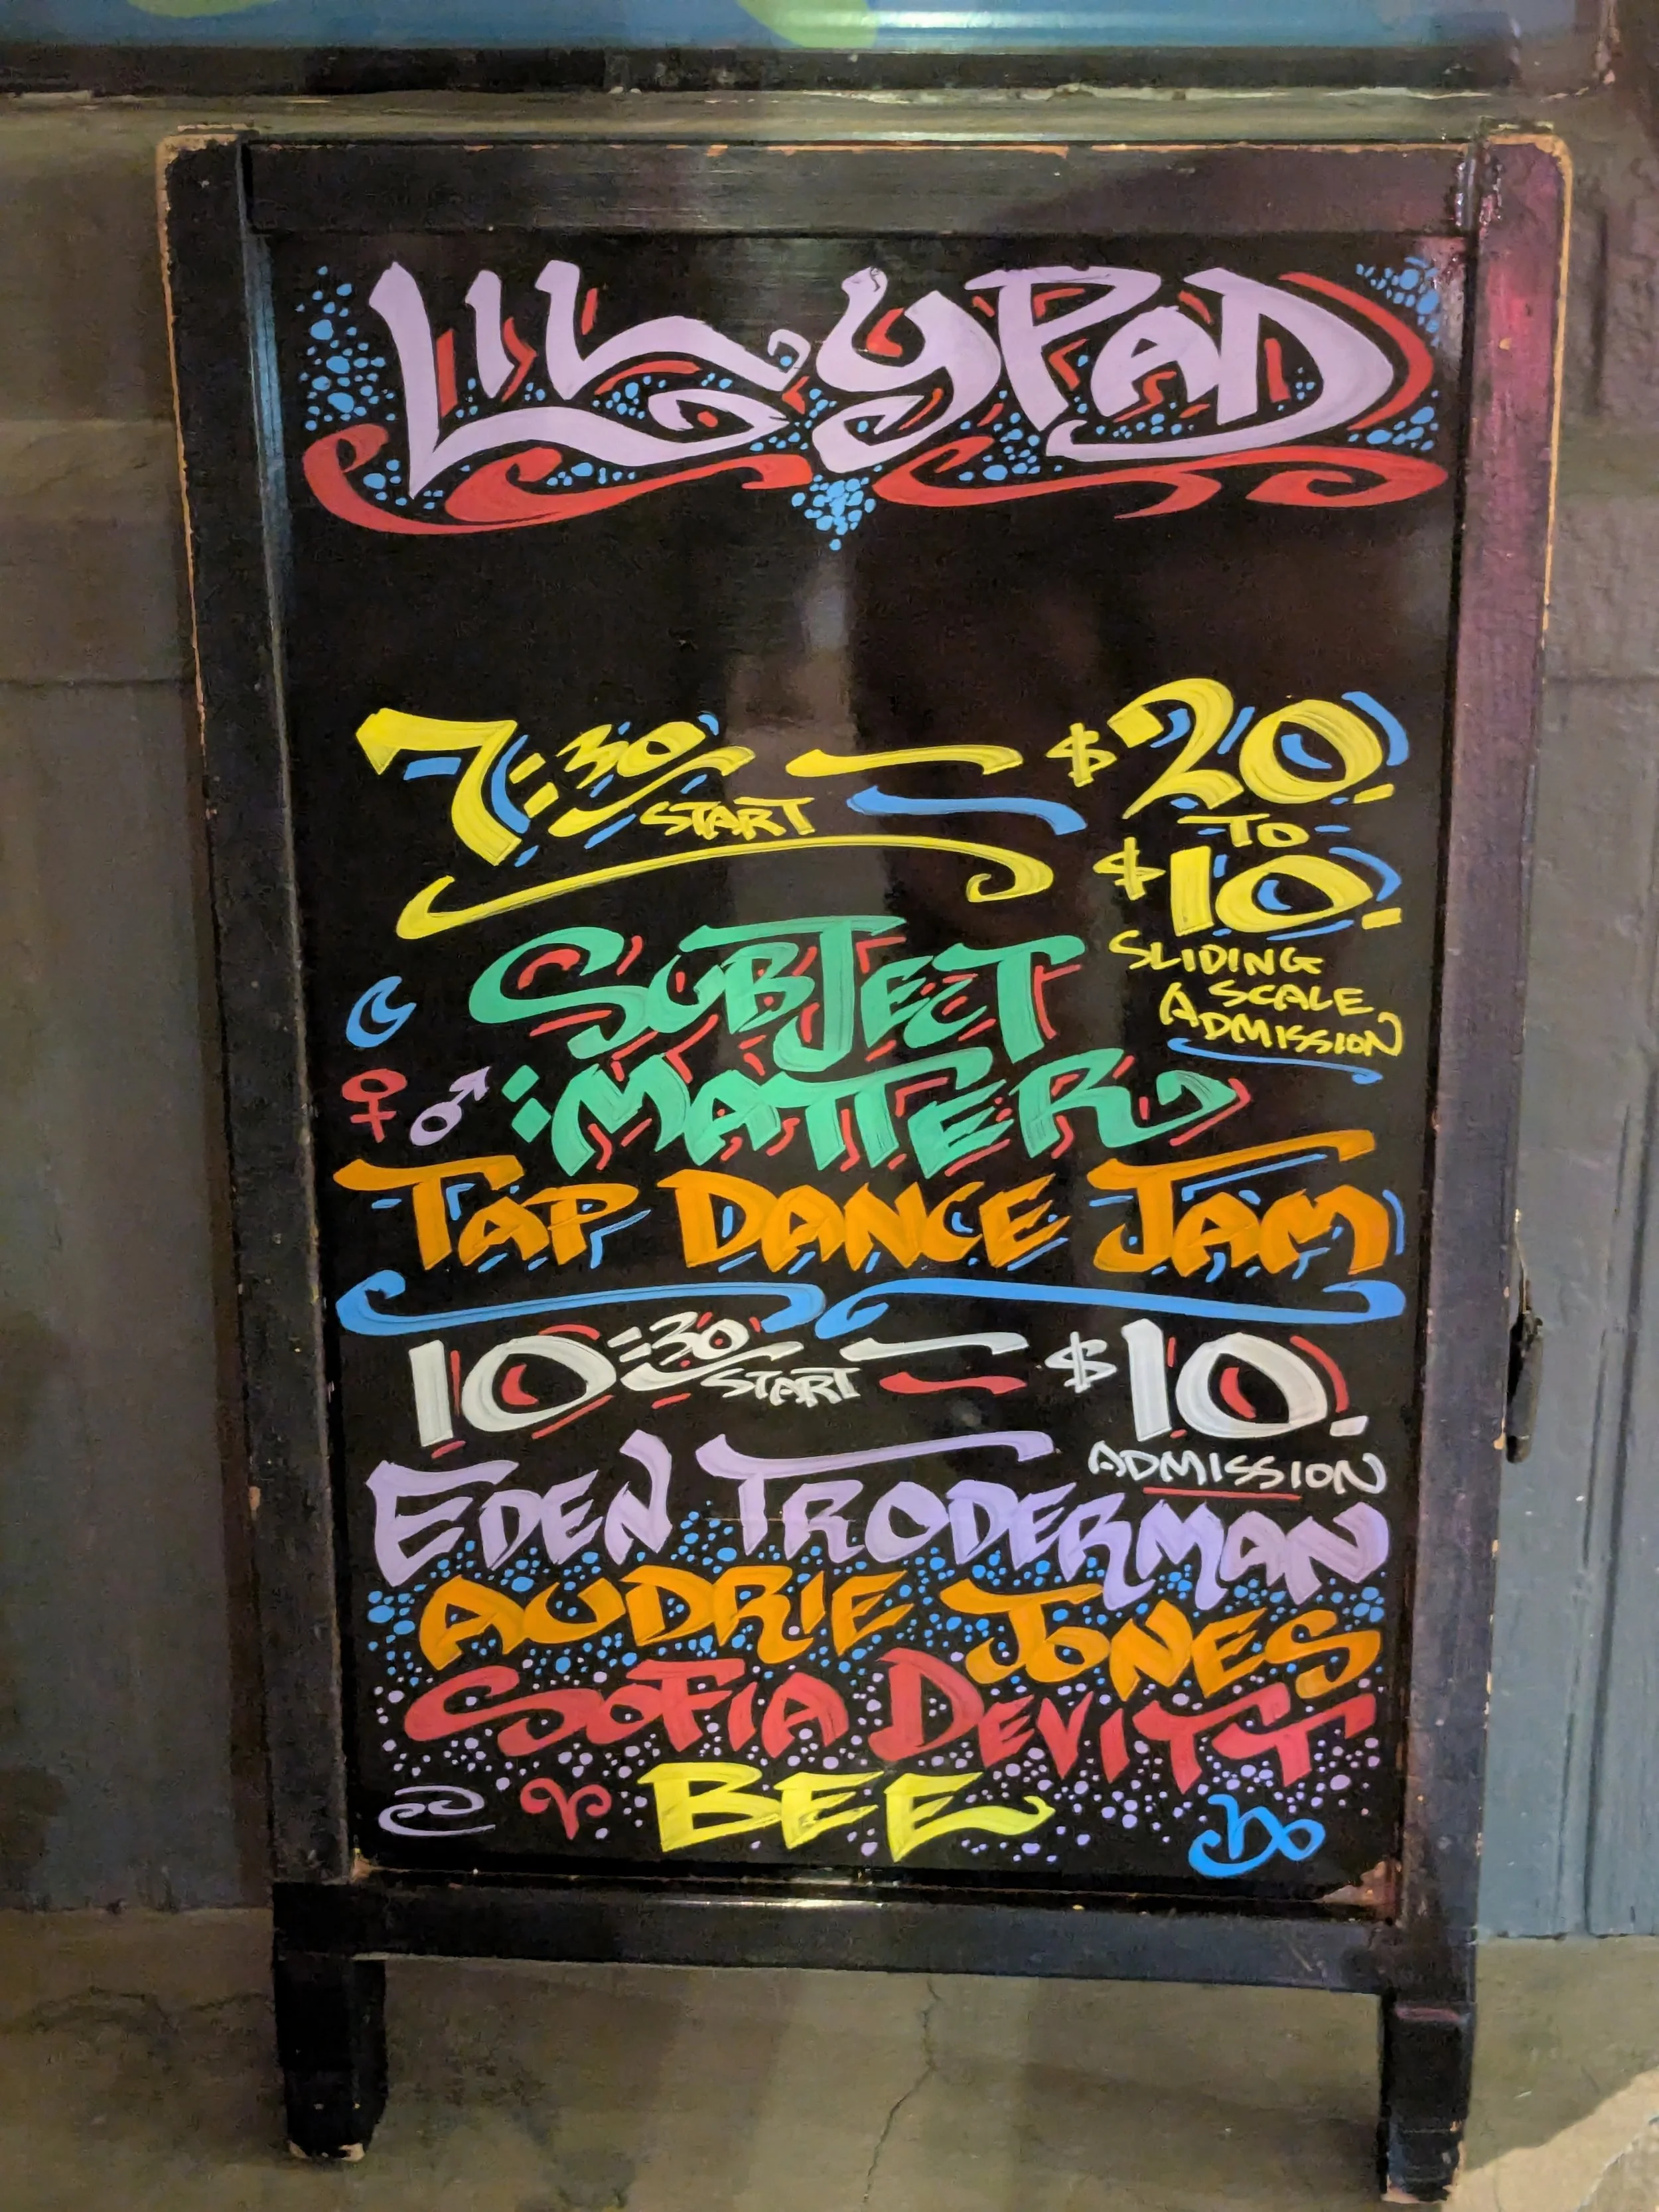 LILYPAD
7:30 START — $20.
TO
$10.
SLIDING
SCALE
ADMISSION
SUBJECT
:MATTER
TAP DANCE JAM
10:30 START — $10.
ADMISSION
EDEN TRODERMAN
AUDRIE JONES
SOFIA DEVITT
BEE